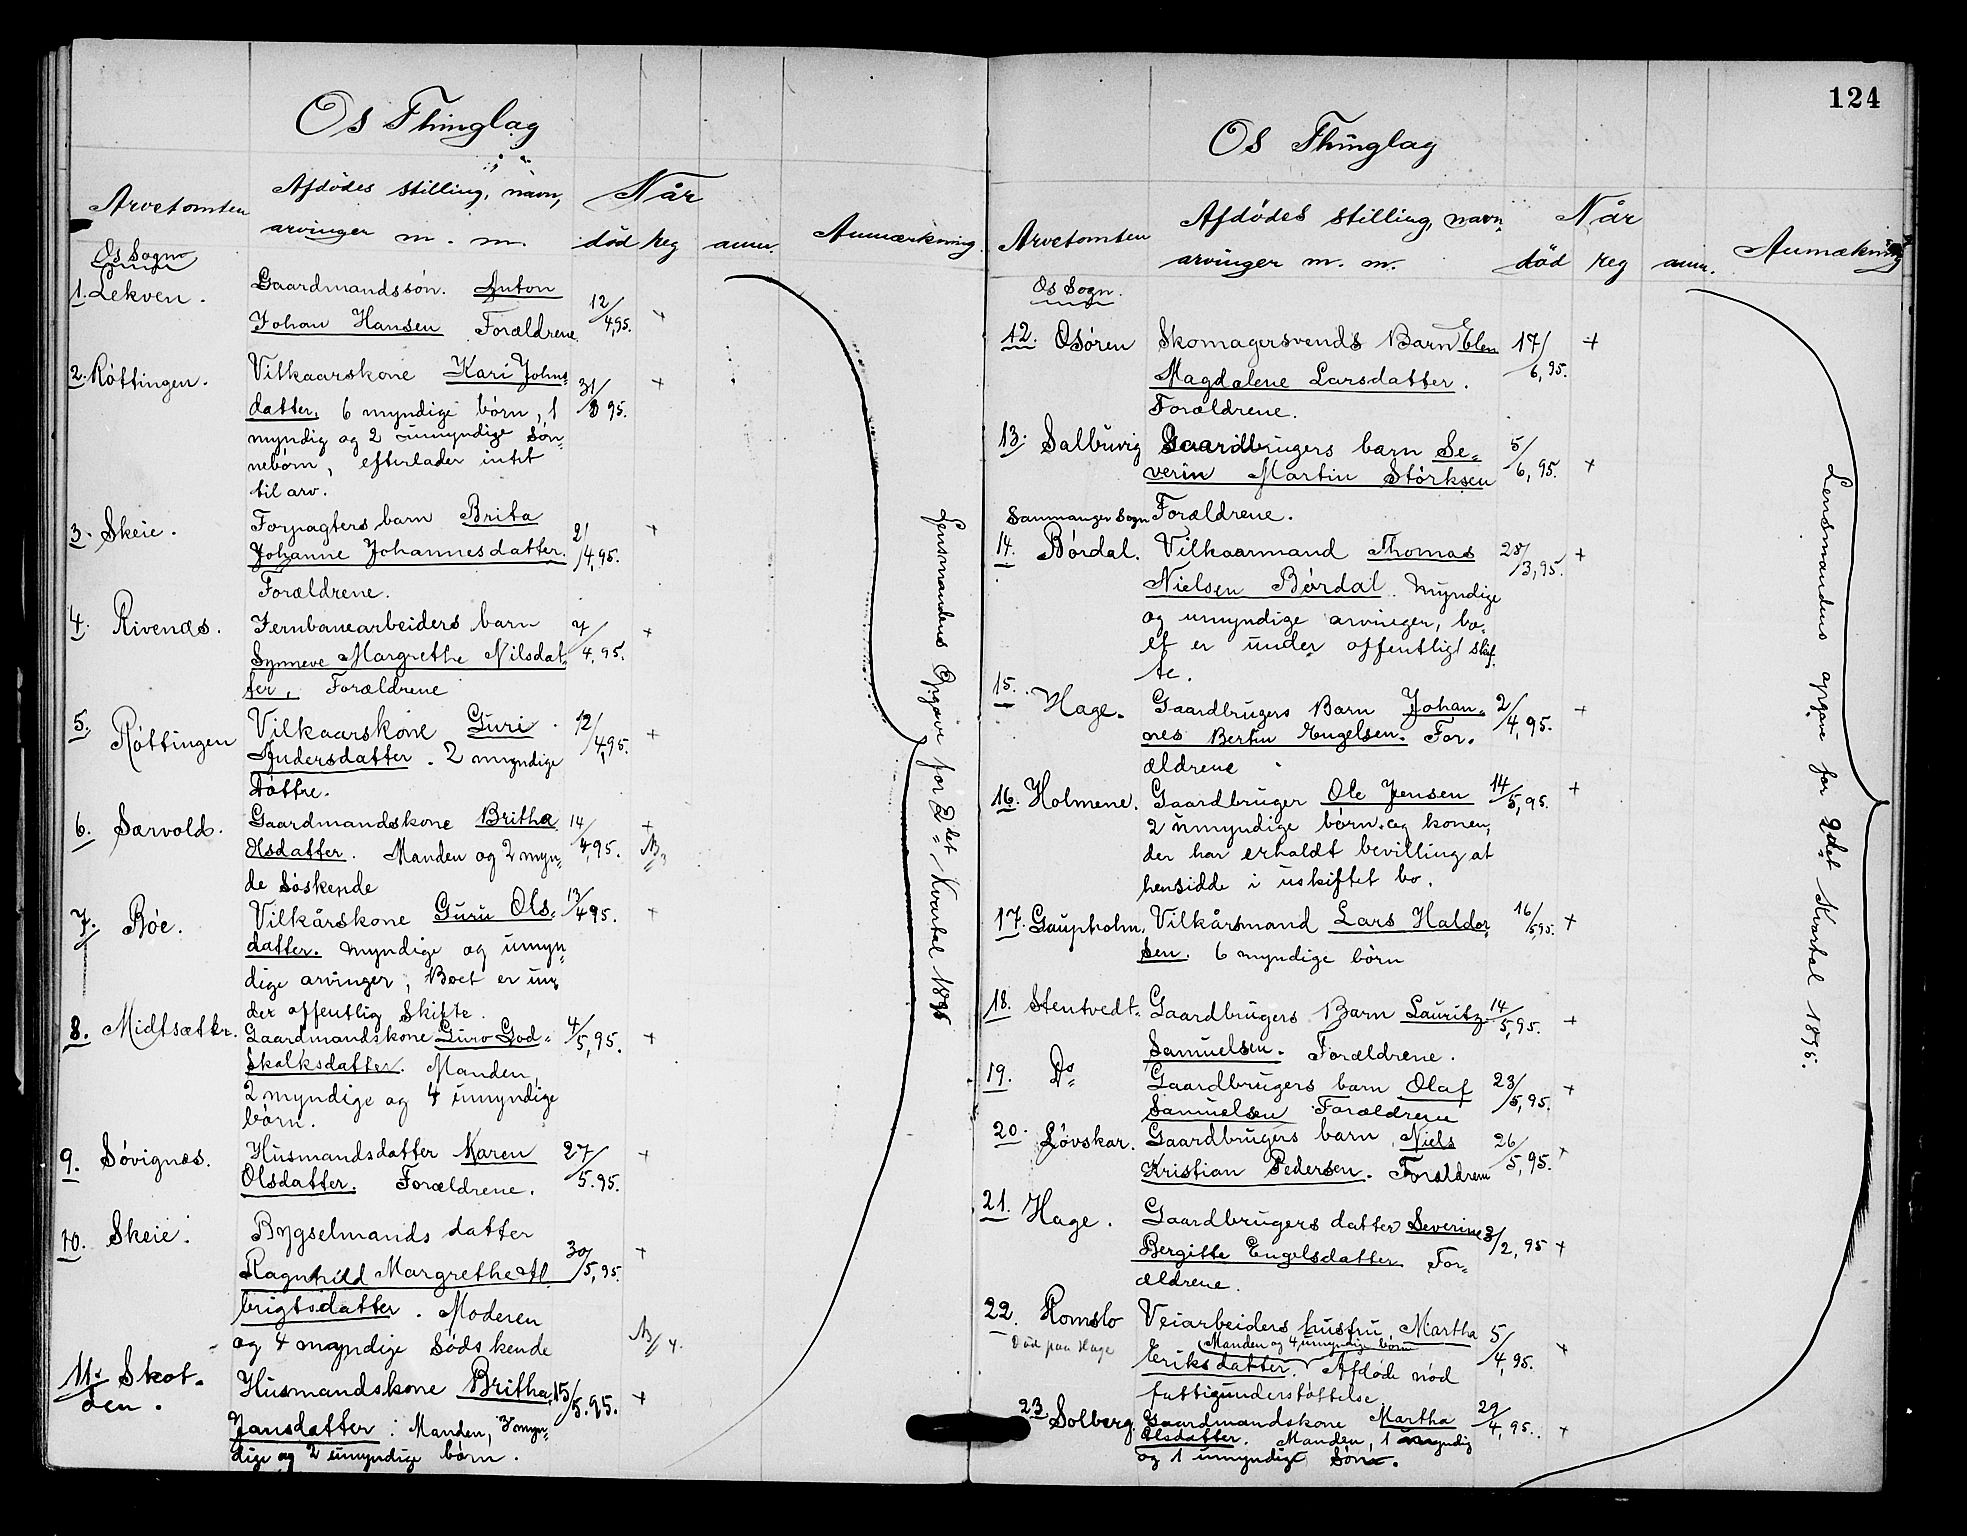 Os Thinglag
Arvetomten
Afdödes stilling, navn,
arvinger m. m.
Når
död reg anm.
Anmærkning
Os Sogn
1. Lekven. Gaardmandssön. Anton 12/4, 95. +
Johan Hansen Forældrene
2. Röttingen. Vilkaarskone Kari Johns= 31/3 95. +
datter, 6 myndige börn, 1
myndig og 2 umyndige Sön=
nebörn, efterlader intet
til arv.
3. Skeie. Forpagters barn Brita 21/4, 95. +
Johanne Johannesdatter.
Forældrene.
4. Rivenæs. Jernbanearbeiders barn 4/4, 95. +
Synneve Margrethe Nilsdat=
ter, Forældrene
5. Röttingen Vilkaarskone Guri 12/4, 95. +
Andersdatter. 2 myndige
Döttre.
6. Særvold. Gaardmandskone Britha 14/4, 95. +
Olsdatter. Manden og 2 myn=
de Söskende
7. Röe. Vilkårskone Guru Ols= 13/4 95. +
datter. Myndige og umyn=
dige arvinger, Boet er un=
der offentlig Skifte.
8. Midtsæter. Gaardmandskone Guro God= 4/5, 95. +
Skalksdatter. Manden,
2 myndige og 4 umyndige
börn.
9. Sövignæs. Husmandsdatter Maren 27/5. 95. +
Olsdatter. Forældrene.
10. Skeie. Bygselmands datter
Ragnhild Margrethe Al= 30/5, 95. +
brigtsdatter. Moderen
og 4 myndige Södskende
11. Skot= Husmandskone Britha 15/5. 95. +
den. Jansdatter: Manden, 3 myn=
dige og 2 umyndige börn.
Lensmandens Opgave for 2det Kvartal 1895
124
Os Thinglag
Arvetomten
Afdödes stilling, navn,
arvinger m. m.
Når
död reg anm.
Anmækning
Os Sogn.
12. Osören Skomagersvends Barn Elen 17/6, 95. +
Magdalene Larsdatter.
Forældrene.
13. Salbuvig Gaardbrugers barn Se= 5/6, 95. +
verin Martin Störksen
Forældrene.
Samnanger Sogn
14. Bördal. Vilkaarmand Thomas 28/3, 95. +
Nielsen Bördal. Myndige
og umyndige arvinger, bo=
et er under offentligt skif=
te.
15. Hage. Gaardbrugers Barn Johan= 2/4, 95. +
nes Bertin Engelsen. For=
ældrene
16. Holmene. Gaardbruger Ole Jensen 14/5, 95. +
2 umyndige börn og konen,
der har erholdt bevilling at
hensidde i uskiftet bo.
17. Gaupholm, Vilkårsmand Lars Haldor 16/5, 95. +
sen. 6 myndige börn
18. Stentvedt. Gaardbrugers Barn Lauritz 14/5, 95. +
Samuelsen. Forældrene.
19. Do Gaardbrugers barn Olaf 23/5, 95. +
Samuelsen Forældrene
20. Lövskar. Gaardbrugers barn, Niels 26/5, 95. +
Kristian Pedersen. Forældrene
21. Hage. Gaardbrugers datter Severine 3/2, 95 +
Bergitte Engelsdatter For=
ældrene.
22. Romslo Veiarbeiders hustru Martha 5/4, 95. +
Död paa Hage
Manden og 4 umyndige börn
Eriksdatter. Aflöde nöd
fattigunderstöttelse.
23 Solberg. Gaardmandskone Martha 29/4, 95. +
Olsdatter. Manden, 1 myndig
og 1 umyndige Sön.
Lensmandens opgave for 2det Kvartal 1895.